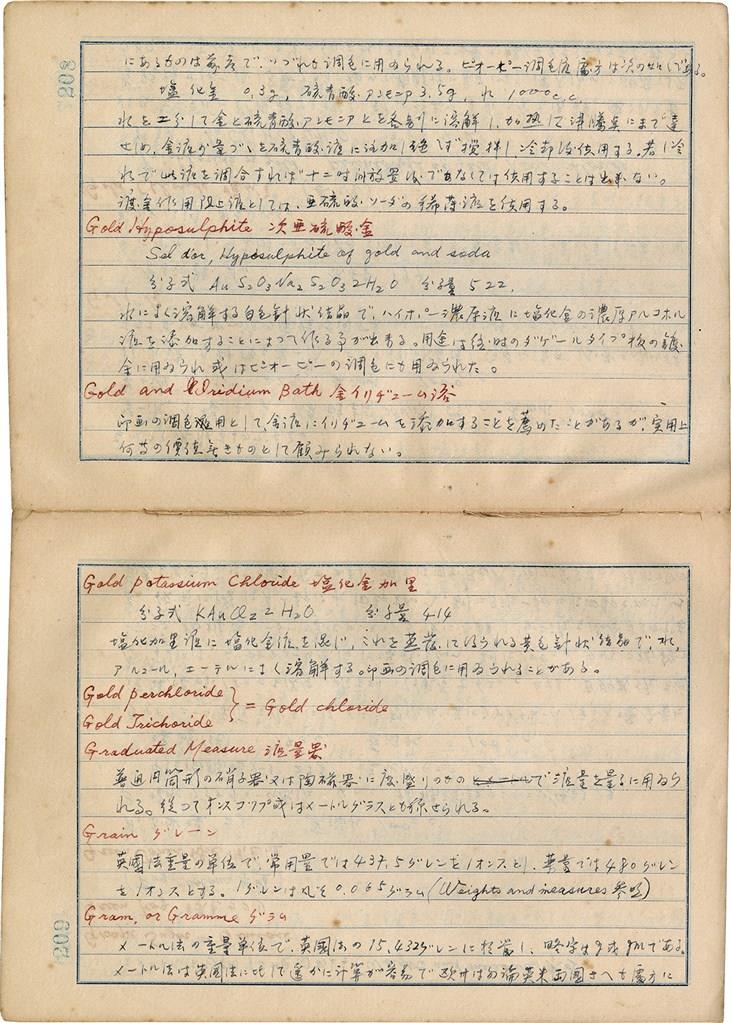 208
にあるものは前者で、いづれも調色に用ゐられる。ピオーピー調色液處方は次の如くである。
塩化金 0.3g, 硫青酸アンモニア 3.5g, 水 1000c.c.
水を二分して金と硫青酸アンモニアとを各別に溶解し、加熱して沸騰点にまで達
せしめ、金液少量づゝを硫青酸液に添加し絶えず攪拌し、冷却後使用する。若し冷
水で此液を調合すれば十二時間放置後でなくては使用することは出来ない。
渡金作用阻止液としては、亜硫酸ソーダの稀薄液を使用する。
Gold Hyposulphite 次亜硫酸金
Sel d'or, Hyposulphite of gold and soda
分子式 Au S2O3 Na2 S2O3 2H2O 分子量 522.
水によく溶解する白色針状結晶で、ハイポー濃厚液に塩化金の濃厚アルコホル
液を添加することによつて作る事が出来る。用途は往時のダゲールタイプ板の鍍
金に用ゐられ或はピオーピーの調色にも用ゐられた。
Gold and Iridium Bath 金イリヂューム浴
印画の調色液用として、金液にイリヂュームを添加することを薦めたことがあるが、実用上
何等の價値無きものとして顧みられない。
Gold potassium Chloride 塩化金加里
分子式 KAuCl2 2H2O 分子量 414
塩化加里液に塩化金液を混じ、これを蒸発して得られる黄色針状結晶で、水,
アルコール, エーテルによく溶解する。印画の調色に用ゐられることがある。
Gold perchloride
Gold Trichoride
} = Gold chloride
Graduated Measure 液量器
普通円筒形の硝子器又は陶磁器に度盛りのもので液量を量るに用ゐら
れる。従つてオンスコップ或はメートルグラスとも称せられる。
Grain グレーン
英國法重量の単位で、常用量では437.5グレンを1オンスとし、薬量では480グレン
を1オンスとする。1グレンは凡そ0.065グラム (Weights and measures 参照)
Gram, or Gramme グラム
メートル法の重量単位で、英國法の15.432グレンに相當し、略字はg或gmである。
メートル法は英國法に比して遙かに計算が容易で欧州は勿論英米両國さへも處方に
209